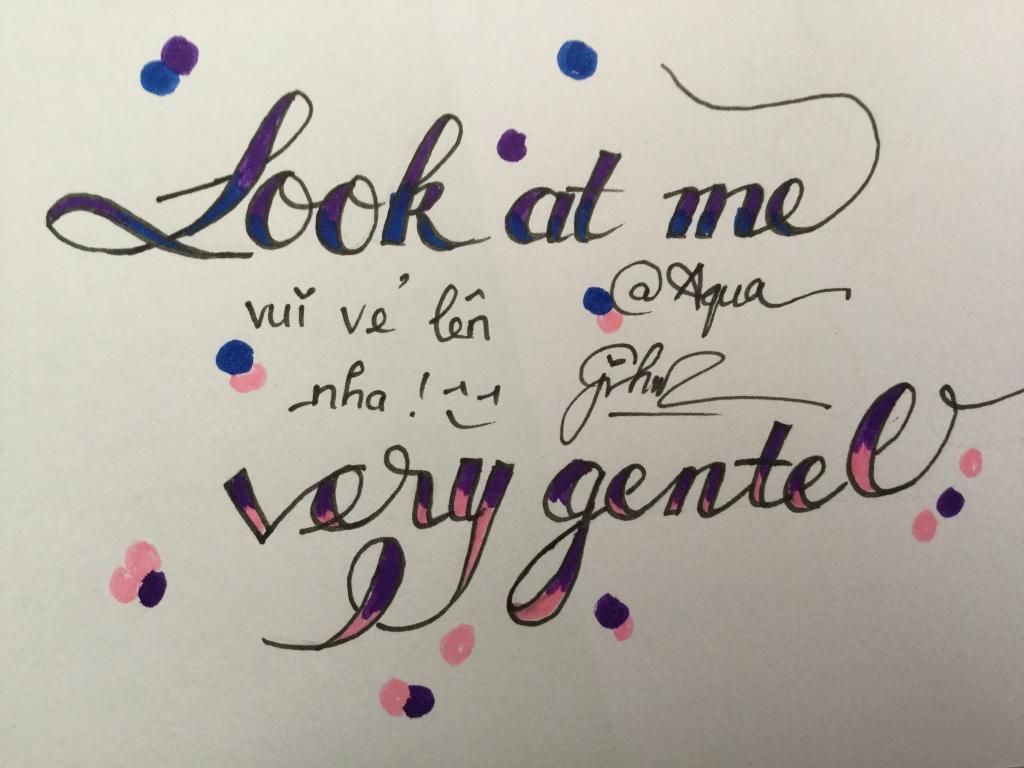 Look at me
vui vẻ lên
nha !
@Aqua
very gentel